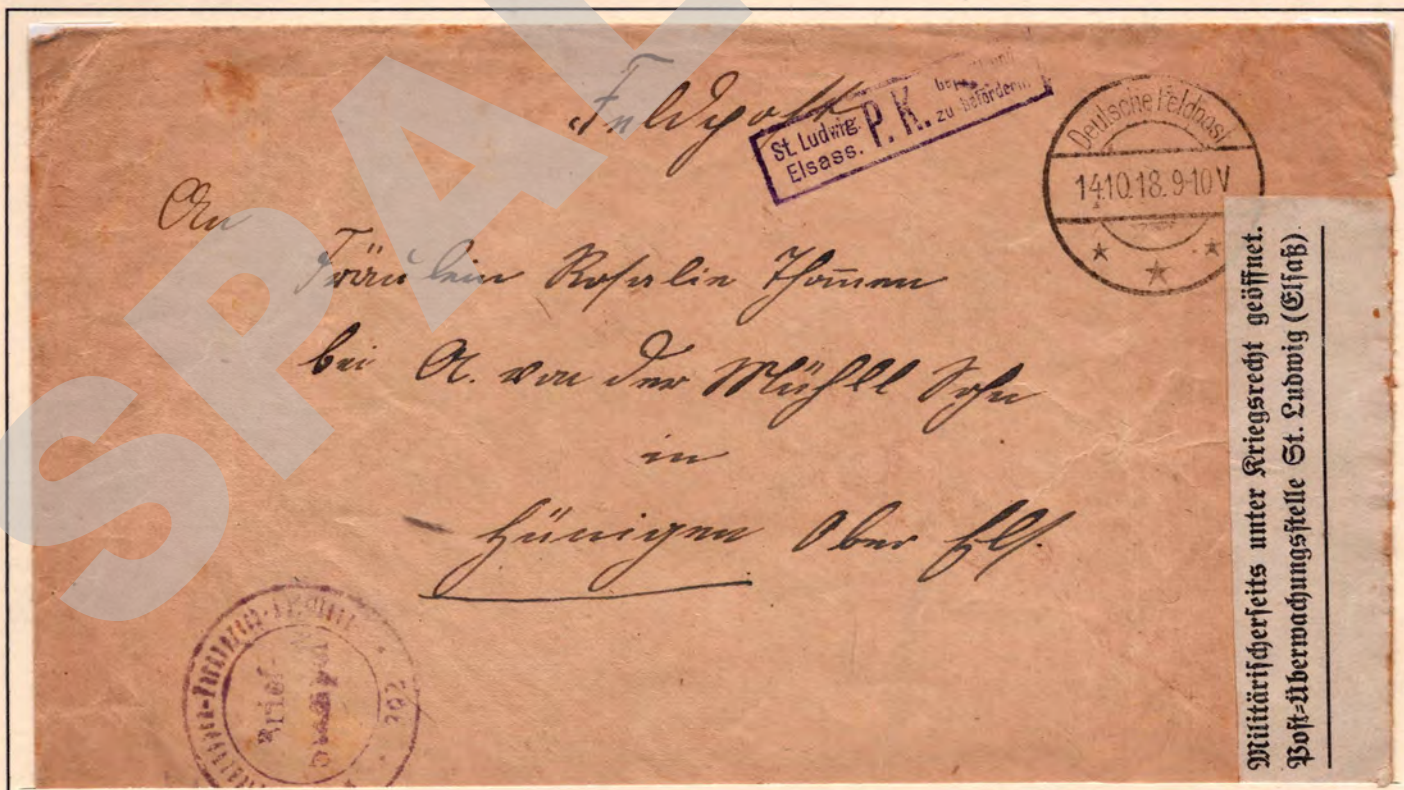 Feldpost
St. Ludwig. P. K. zu befördern.
Elsass.
Deutsche Feldpost
14.10.18. 9-10 V
An
Fräulein Rosalie Thomen
bei A. von der Mühll Sohn
in
Hünigen Ober Els.
Militärischerseits unter Kriegsrecht geöffnet.
Post=Überwachungsstelle St. Ludwig (Elsaß).
Brief-